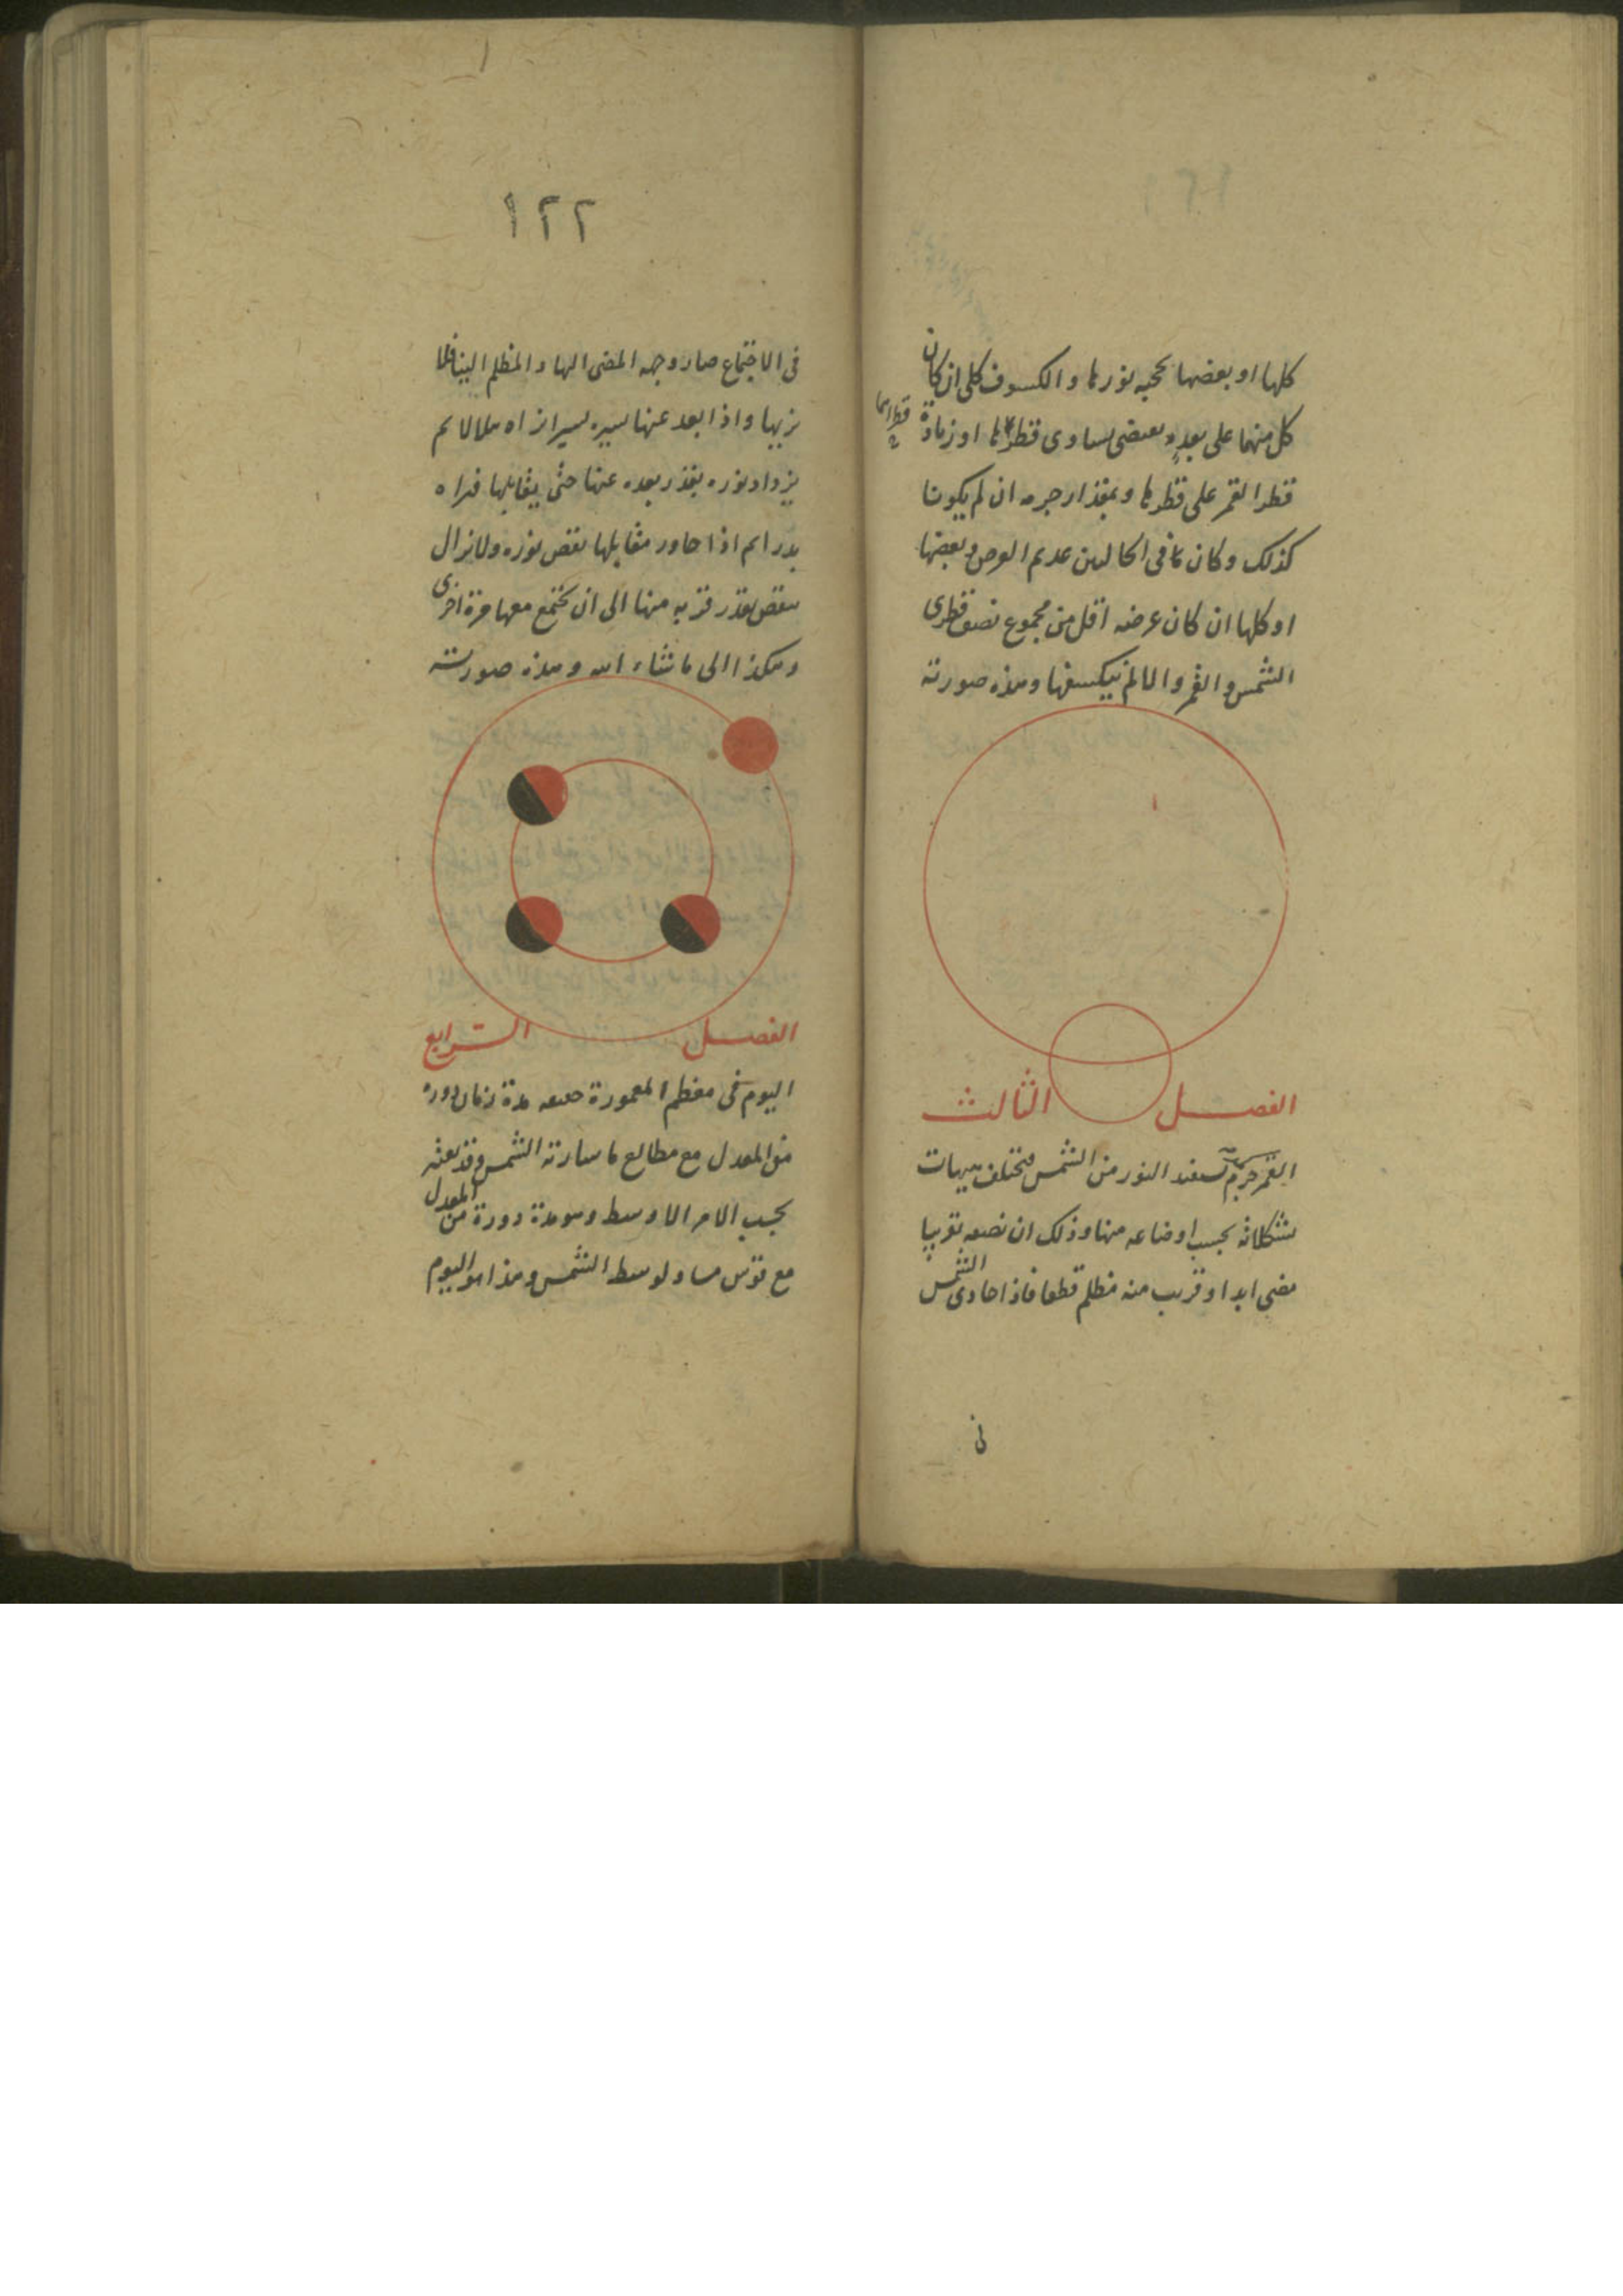 كلها او بعضها بحجبه نورها والكسوف كلى ان كان
كل منهما على بعد يقتضى تساوى قطريهما او زيادة
قطرا القمر على قطرها وبمقدار جرمه ان لم يكونا
كذلك وكان فى الحالين عديم العرض وبعضها
او كلها ان كان عرضه اقل من مجموع نصف قطرى
الشمس والقمر والا لم يكسفها وهذه صورته
الفصل الثالث
القمر جرم يستفيد النور من الشمس فتختلف هيهات
تشكلاته بحسب اوضاعه منها وذلك ان نصفه تقريبا
مضى ابدا وقريب منه مظلم قطعا فاذا حاذى الشمس
فى
١٢٢
فى الاجتماع صار وجهه المضى اليها والمظلم الينا فلا
يزيها واذا بعد عنها بسيره يسيرا نراه هلالا ثم
يزداد نوره بقدر بعده عنها حتى يقابلها فنراه
بدرا ثم اذا جاوز مقابلها نقص نوره ولا يزال
ينقص بقدر قربه منها الى ان يجتمع معها مرة اخرى
وهكذا الى ما شاء الله وهذه صورته
الفصل الرابع
اليوم فى معظم المعمورة مدة زمان دورة
من المعدل مع مطالع ما سارته الشمس وقد يعتبر
بحسب الامر الاوسط وهو مدة دورة من المعدل
مع قوس مساو لوسط الشمس وهذا هو اليوم